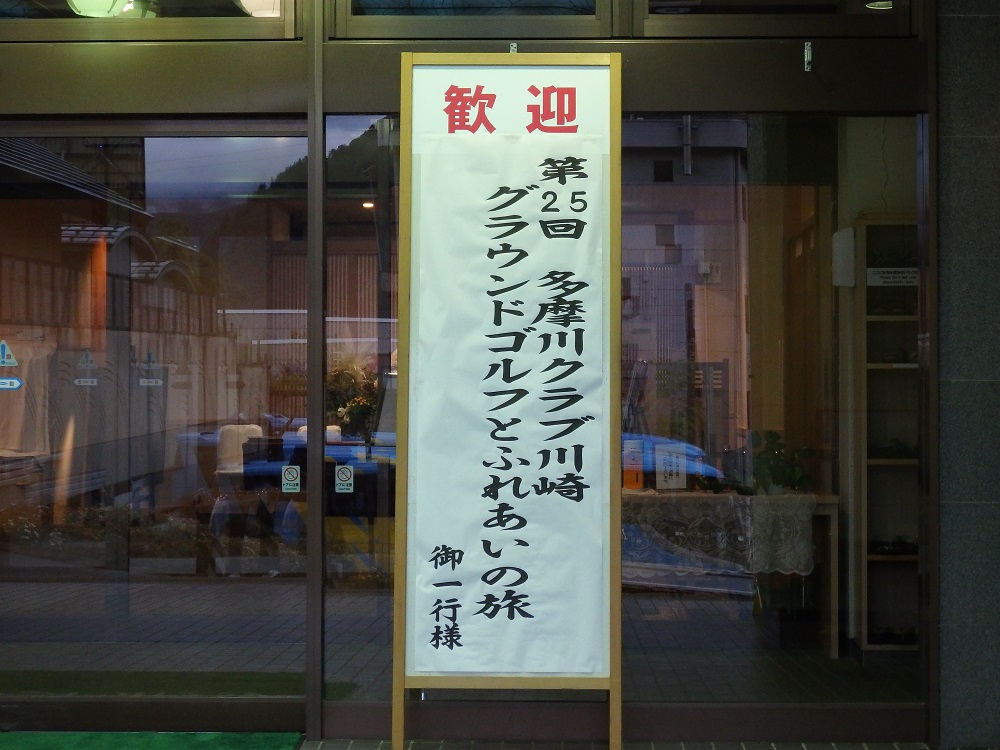 歓迎
第25回 多摩川クラブ川崎
グラウンドゴルフとふれあいの旅
御一行様